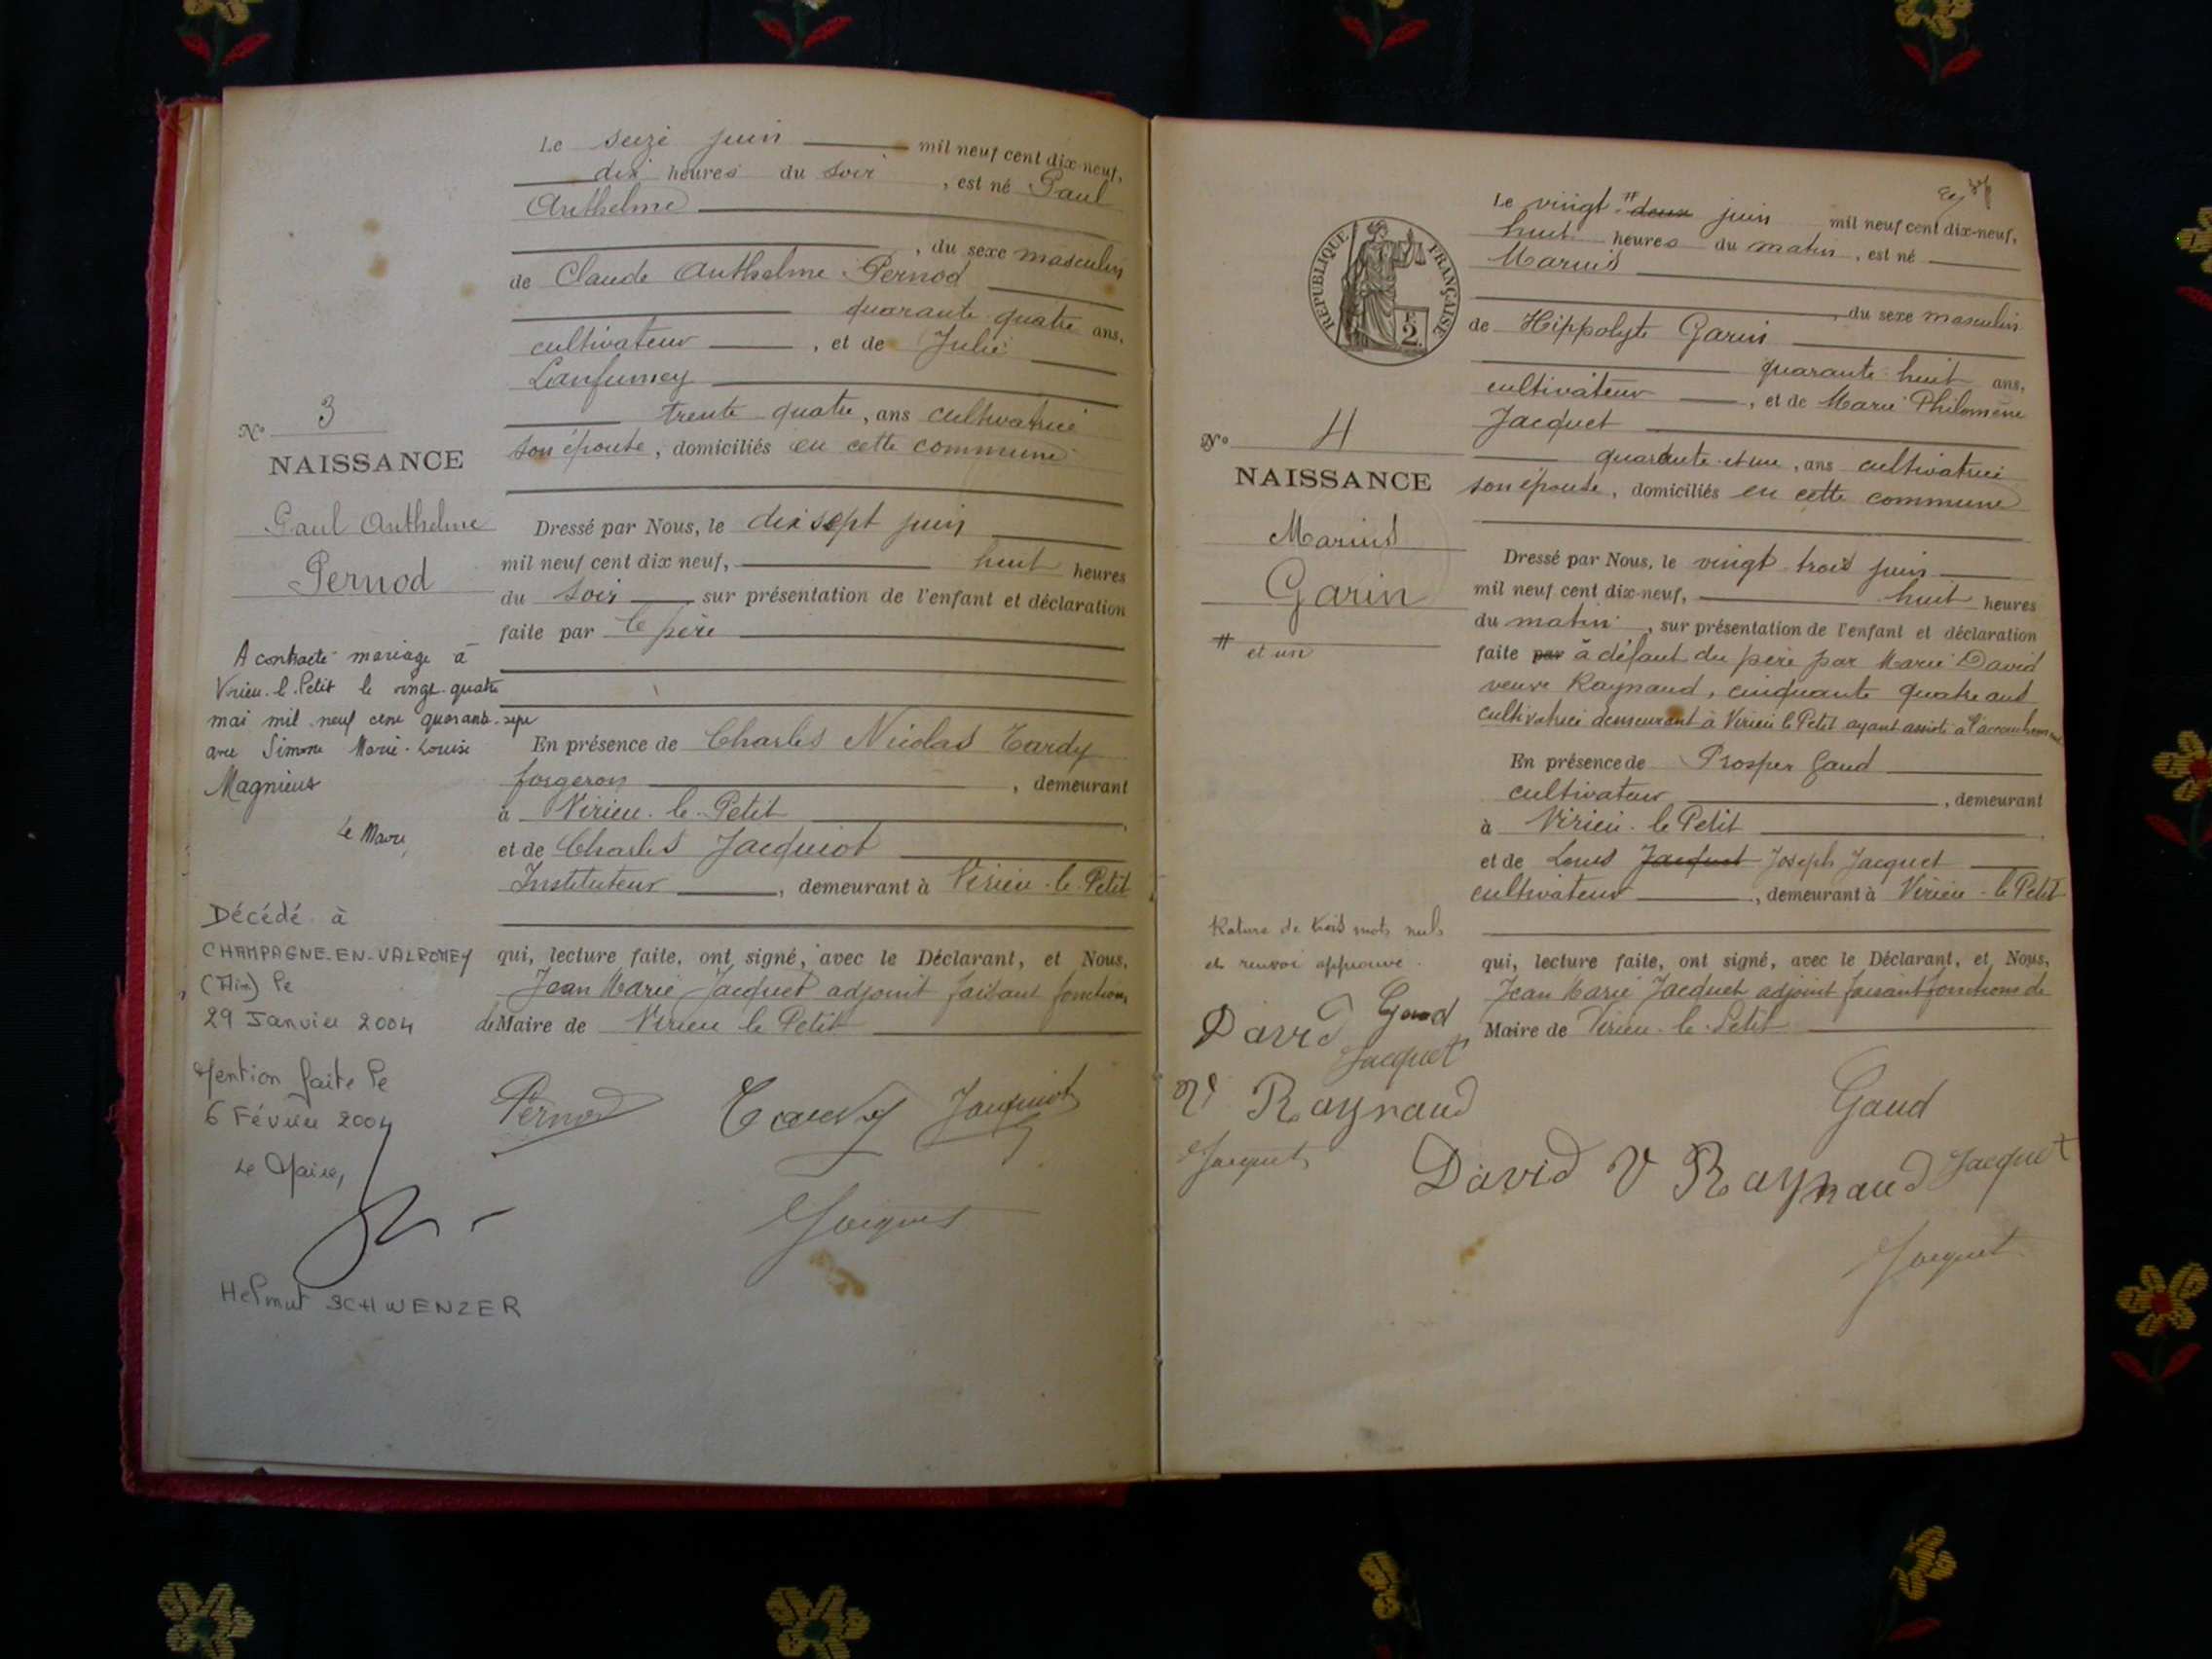 Le seize juin mil neuf cent dix-neuf,
dix heures du soir, est né Paul
Anthelme
, du sexe masculin
de Claude Anthelme Pernod
quarante quatre ans,
cultivateur, et de Julie
Lanfumey
trente quatre, ans cultivatrice
son épouse, domiciliés en cette commune
Dressé par Nous, le dix sept juin
mil neuf cent dix neuf, huit heures
du soir sur présentation de l'enfant et déclaration
faite par le père
En présence de Charles Nicolas Tardy
forgeron, demeurant
à Virieu-le-Petit
et de Charles Jacquiot
Instituteur, demeurant à Virieu-le-Petit
qui, lecture faite, ont signé, avec le Déclarant, et Nous,
Jean Marie Jacquet adjoint faisant fonctions
de Maire de Virieu le Petit
Pernod Tardy Jacquiot
Jacquet
No 3
NAISSANCE
Paul Anthelme
Pernod
A contracté mariage à
Virieu-le-Petit le vingt-quatre
mai mil neuf cent quarante-sept
avec Simone Marie-Louise
Magnieux
Le Maire,
Décédé à
CHAMPAGNE-EN-VALROMEY
(Ain) le
29 Janvier 2004
Mention faite le
6 Février 2004
Le Maire,
Helmut SCHWENZER
Le vingt # deux juin mil neuf cent dix-neuf,
huit heures du matin, est né
Marius
, du sexe masculin
de Hippolyte Garin
quarante huit ans,
cultivateur, et de Marie Philomène
Jacquet
quarante et une, ans cultivatrice
son épouse, domiciliés en cette commune
Dressé par Nous, le vingt trois juin
mil neuf cent dix-neuf, huit heures
du matin, sur présentation de l'enfant et déclaration
faite par à défaut du père par Marie David
veuve Raynaud, cinquante quatre ans
cultivatrice demeurant à Virieu le Petit ayant assisté à l'accouchement
En présence de Prosper Gaud
cultivateur, demeurant
à Virieu-le Petit
et de Louis Jacquet Joseph Jacquet
cultivateur, demeurant à Virieu-le Petit
qui, lecture faite, ont signé, avec le Déclarant, et Nous,
Jean Marie Jacquet adjoint faisant fonctions de
Maire de Virieu-le-Petit
Gaud
David V Raynaud Jacquet
Jacquet
RÉPUBLIQUE FRANÇAISE
2
No 4
NAISSANCE
Marius
Garin
# et un
Rature de trois mots nuls
et renvoi approuvé.
David Gaud
Jacquet
V Raynaud
Jacquet